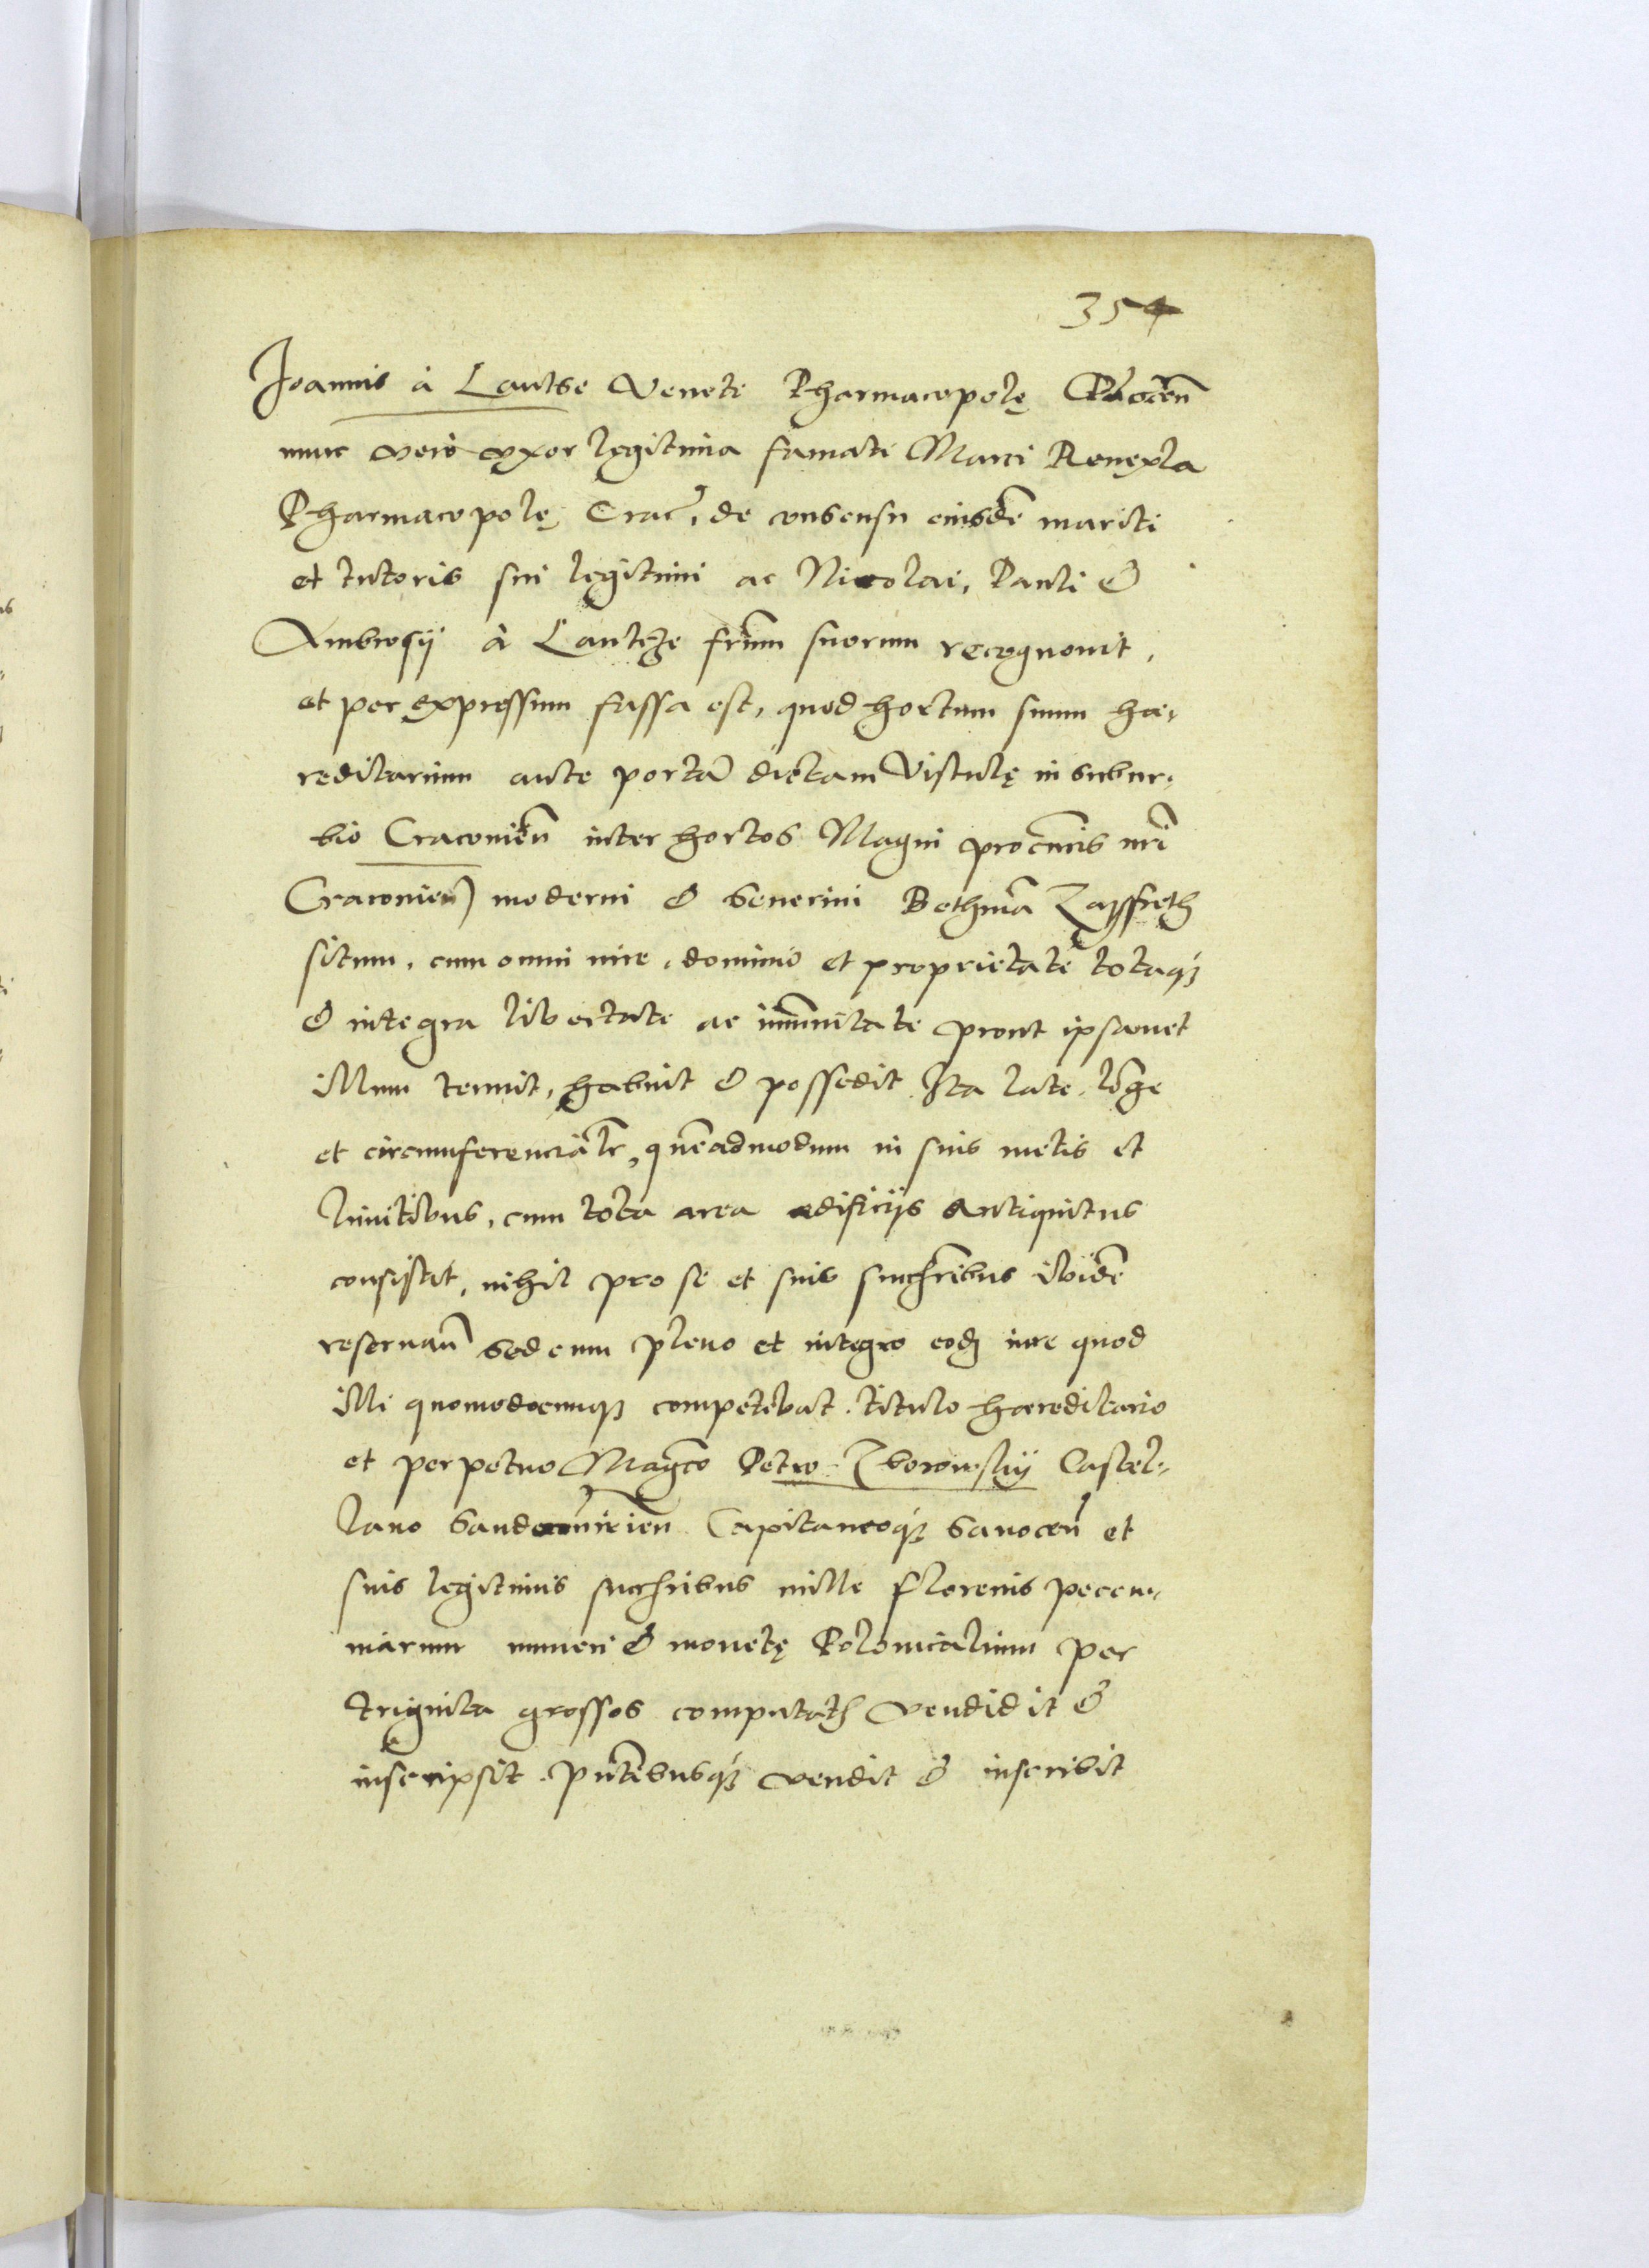 354
Joannis à Lantse Venete Pharmacopolę
nunc vero uxor legitima famati Marci Renexla
Pharmacopolę Crac, de consensu eiusdē mariti
et tutoris sui legitimi ac Nicolai, Pauli &
Ambrosij à Lantcze frūm suorum recognovit,
et per expressum fassa est, quod hortum suum hæ-
reditarium ante portā dictam Vistulę in subur-
bio Cracovień inter hortos Magni procuris nrī
Cracovień moderni & Severini Bethmā Zayffreth
situm, cum omni iure, dominio et proprietate totaqȝ
& integra libertate ac imūnitate prout ipsamet
illum tenuit, habuit & possedit Ita late, lōge
et circumferenciałr, quēadmodum in suis metis et
limitibus, cum tota area ædificijs antiquitus
consistit, nihil pro se et suis succſribus ibidē
reservań sed cum pleno et integro eodȝ iure quod
illi quomodocumqȝ competebat. titulo hæreditario
et perpetuo Magco Petro Zborowskij Castel-
lano Sandomirień Capitaneoqȝ Sanoceń et
suis legitimis succſribus mille florenis pecu-
niarum numeri & monetę Polonicalium per
trigīnta grossos computatȝ vendidit &
inscripsit. pñtibusqȝ vendit & inscribit